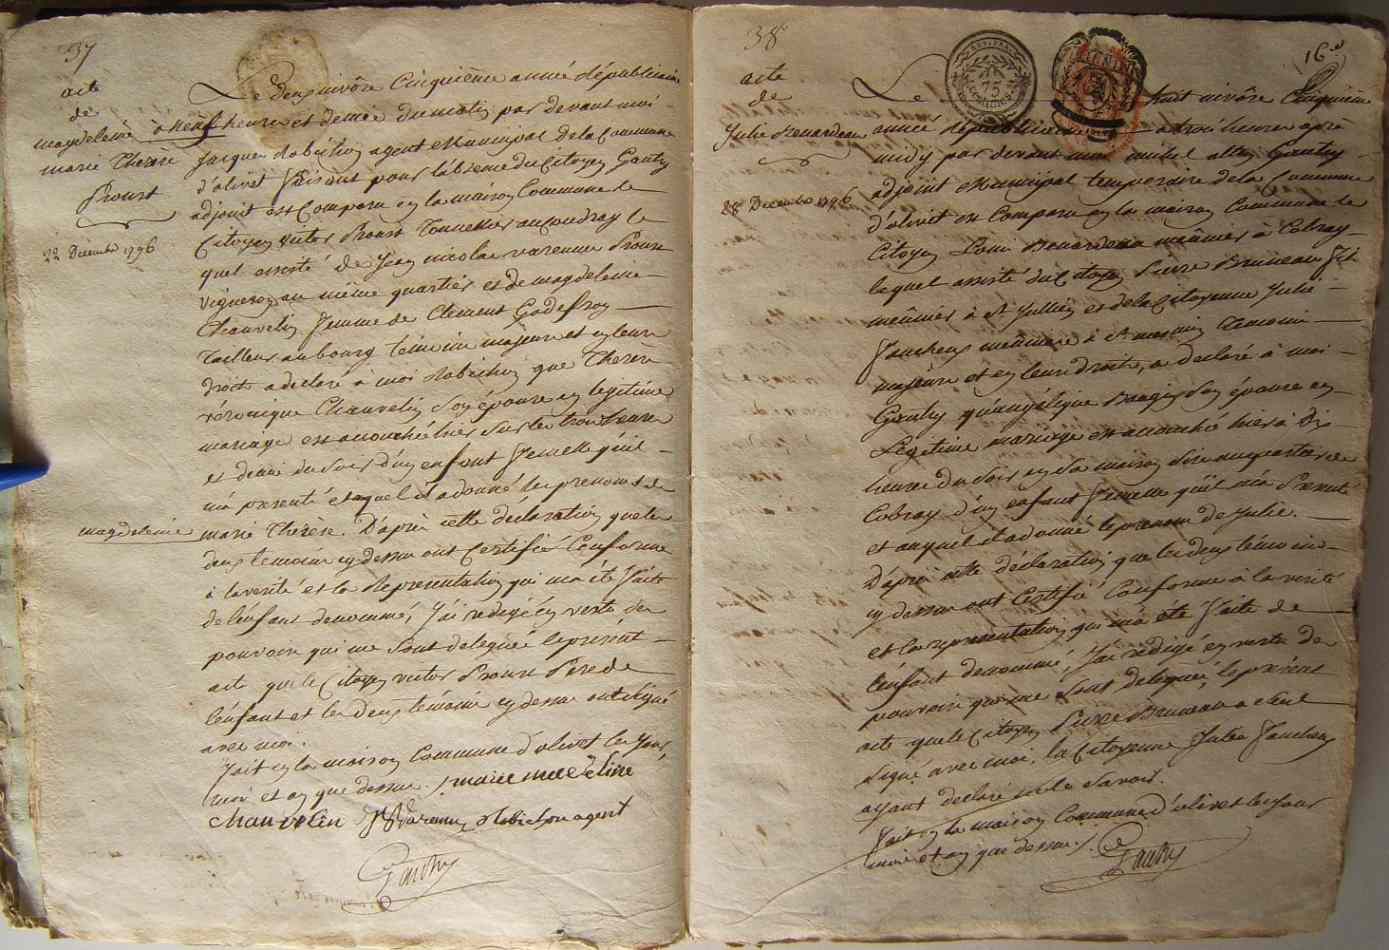 37
acte
de
magdeleine
marie Therese
Proust
22 Decembre 1796
Le deux nivôse Cinquième année Républicaine
à Neuf heures et demie du matin par devant moi
Jacques Robichon agent Municipal de la Commune
d'olivet faisant pour l'absence du Citoyen Gautry
adjoint est Comparu en la maison Commune le
Citoyen victor Proust Tonnellier au Coudray le
quel assisté de Jean nicolas varenne Proust
vigneron au même quartier et de magdeleine
Chauvelin femme de Clement Godefroy
Tailleur au bourg témoins majeurs et en leurs
droits a declaré à moi Robichon que Therese
véronique Chauvelin son épouse en legitime
mariage est accouchée hier sur les trois heures
et demie du soir d'un enfant femelle qu'il
m'a presenté et auquel il a donné les prenoms de
magdeleine marie Therese. D'après cette déclaration que les
deux temoins cy dessus ont Certifié Conforme
à la verité et la Representation qui m'a été faite
de l'enfant denommé, j'ai redigé en vertu des
pouvoirs qui me sont delegués le present
acte que le Citoyen victor Proust Pere de
l'enfant et les deux témoins cy dessus ont signé
avec moi.
fait en la maison Commune d'olivet les jour,
mois et an que dessus. marie madeleine
Chauvelin JN Varenne Robichon agent
Gautry
38
16
acte
de
Julie Renardeau
28 Decembre 1796
Le huit nivôse Cinquième
année Républicaine à trois heures après
midy par devant moi michel Gautry
adjoint Municipal temporaire de la Commune
d'olivet est Comparu en la maison Commune le
Citoyen Louis Renardeau meûnier à Cobray
lequel assisté du Citoyen Pierre Bruneau fils
meûnier à St Jullien et de la Citoyenne Julie
Faucheux meûniere à St mesmin temoins
majeurs et en leurs droits, a declaré à moi
Gautry qu'angélique son épouse en
Légitime mariage est accouchée hier à dix
heures du soir en sa maison sise au quartier de
Cobray d'un enfant femelle qu'il m'a Presenté
et auquel il a donné le prenom de Julie.
D'après cette déclaration que les deux témoins
cy dessus ont Certifié Conforme à la verité
et la representation qui m'a été faite de
l'enfant denommé, j'ai redigé en vertu des
pouvoirs qui me sont delegués, le présent
acte que le Citoyen Pierre Bruneau a seul
signé avec moi, la Citoyenne Julie Faucheux
ayant declaré ne le savoir.
fait en la maison Commune d'olivet les jour
mois et an que dessus.
Gautry